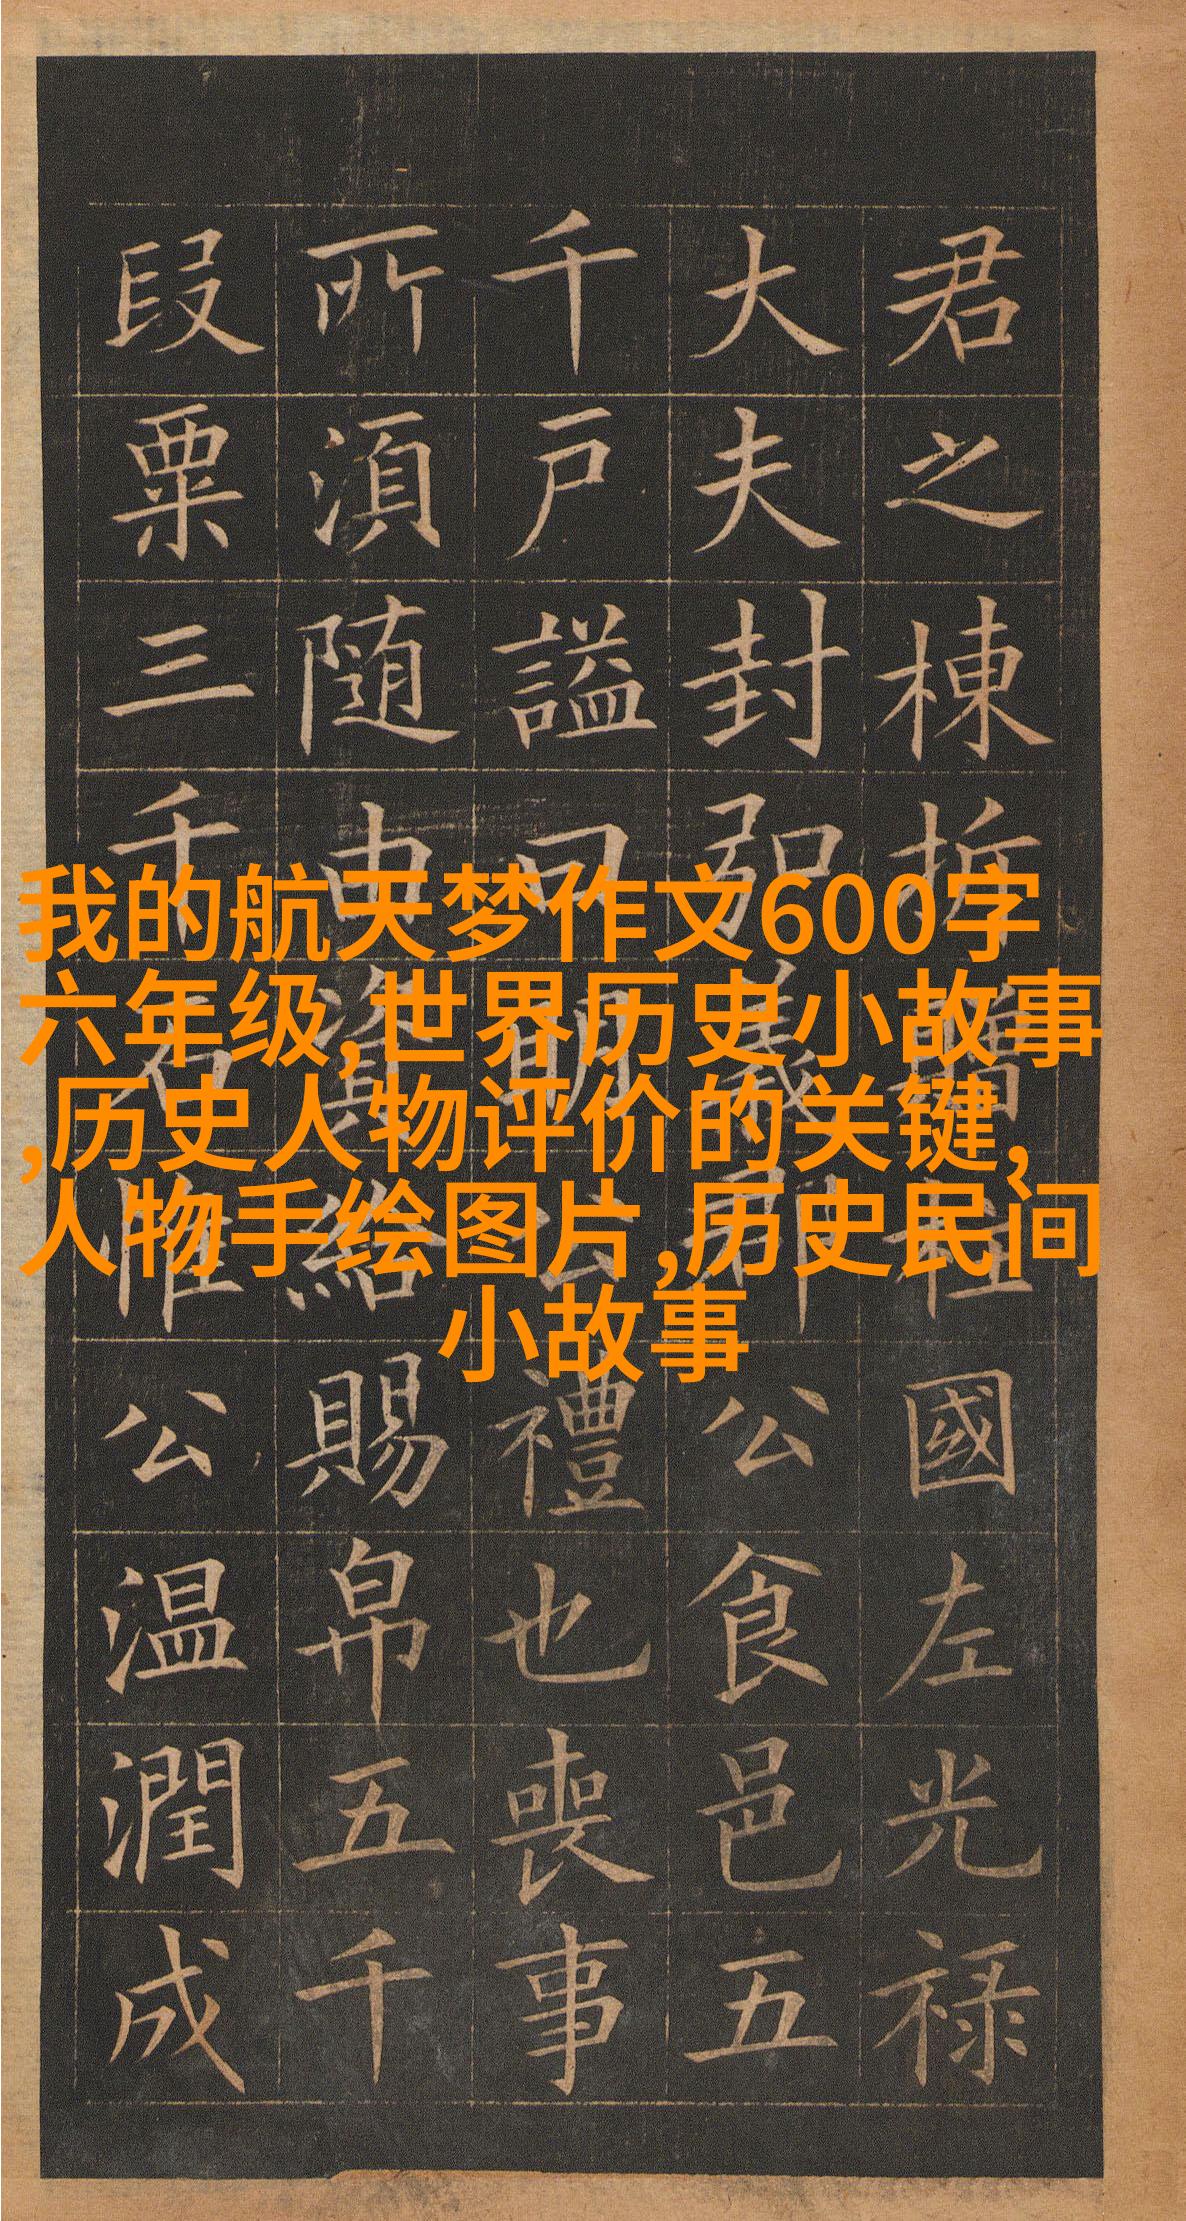 君之棟折贈柱國左光禄
大夫封弘義郡公食邑五
千戶謚曰明公禮也喪事
所湏随由資給賜帛五千
段粟三千石惟公温潤成
我的航天梦作文600字
六年级,世界历史小故事
,历史人物评价的关键,
人物手绘图片,历史民间
小故事